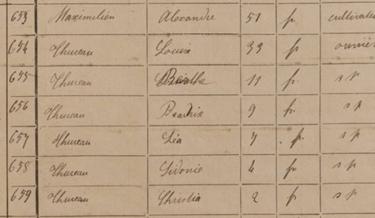 653 Maximilien Alexandre 51 fr. cultivateu
654 Thureau Louis 33 fr. ouvrier
655 Thureau 11 fr. s p
656 Thureau Beatrix 9 fr. s p
657 Thureau Léa 7 fr. s p
658 Thureau Sidonie 4 fr. s p
659 Thureau 2 fr. s p